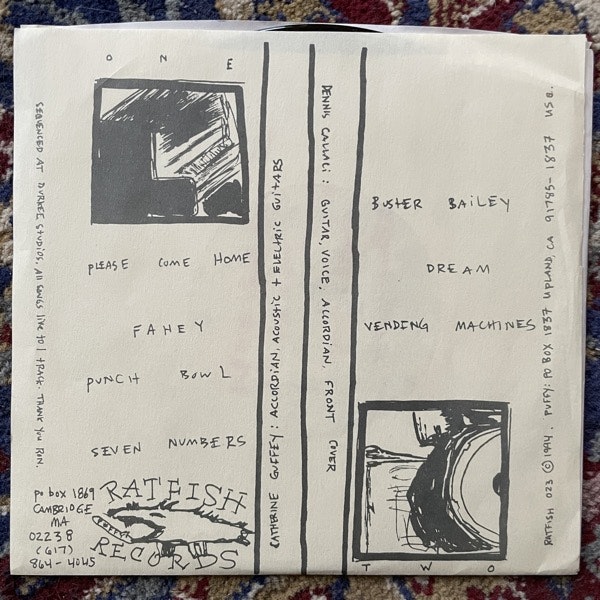 ONE
PLEASE COME HOME
FAHEY
PUNCH BOWL
SEVEN NUMBERS
SEQUENCED AT DURKEE STUDIOS. All SONGS LIVE TO 1 TRACK. THANK YOU RON.
po box 1869
CAMBRIDGE
MA
02238
(617)
864-4045
RATFISH
RECORDS
CATHERINE GUFFEY: ACCORDIAN, ACOUSTIC + ELECTRIC GUITARS
DENNIS CALLACI: GUITAR, VOICE, ACCORDIAN, FRONT COVER
BUSTER BAILEY
DREAM
VENDING MACHINES
TWO
RATFISH 023 © 1994. PUFFY: PO BOX 1837 UPLAND, CA 91785-1837 USA.